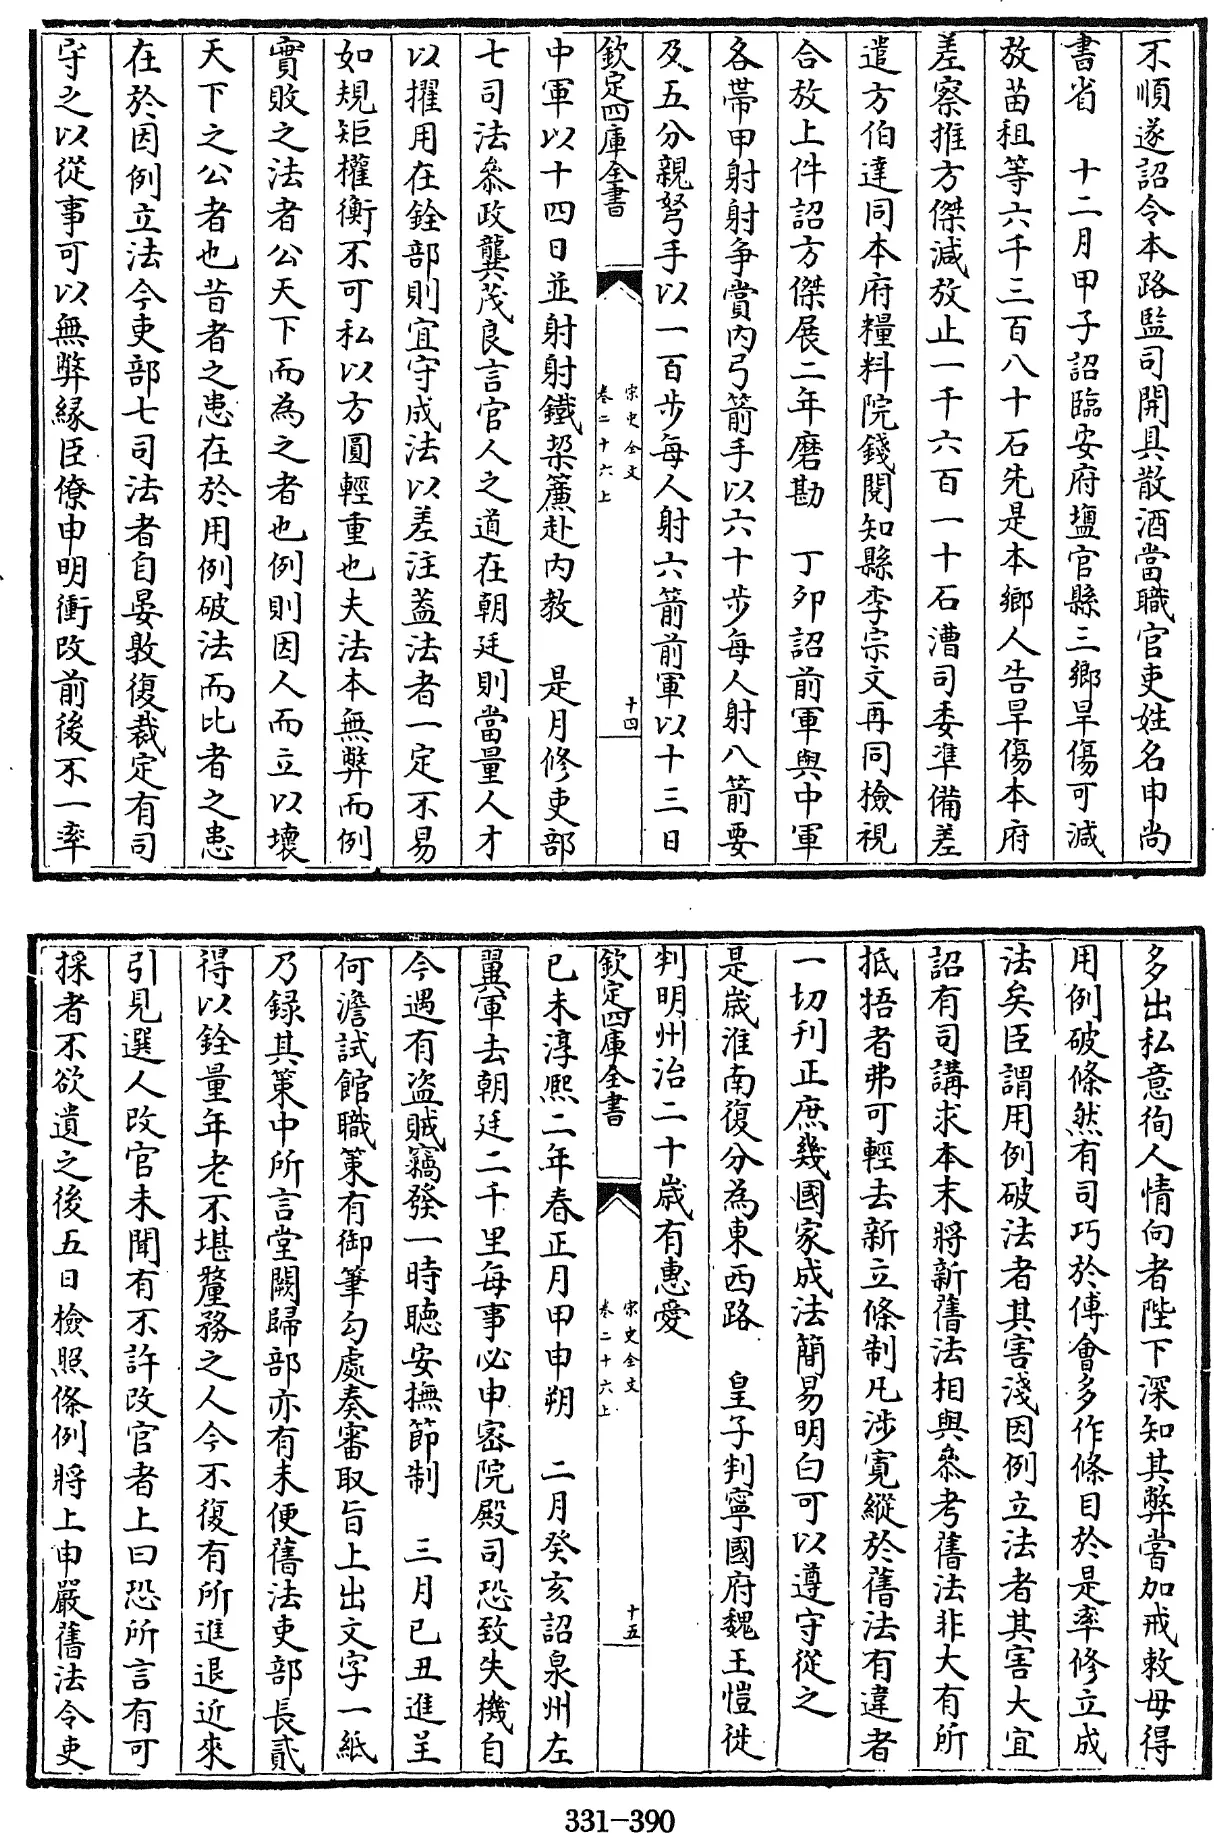 不順遂詔令本路監司開具散酒當職官吏姓名申尚
書省　十二月甲子詔臨安府鹽官縣三鄉旱傷可減
放苗租等六千三百八十石先是本鄉人告旱傷本府
差察推方傑減放止一千六百一十石漕司委準備差
遣方伯達同本府糧料院錢閱知縣李宗文再同檢視
合放上件詔方傑展二年磨勘　丁卯詔前軍與中軍
各帶甲射射爭賞內弓箭手以六十步每人射八箭要
及五分親弩手以一百步每人射六箭前軍以十三日
欽定四庫全書
宋史全文
卷二十六上
十四
中軍以十四日並射射鐵㮶簾赴內教　是月修吏部
七司法叅政龔茂良言官人之道在朝廷則當量人才
以擢用在銓部則宜守成法以差注蓋法者一定不易
如規矩權衡不可私以方圓輕重也夫法本無弊而例
實敗之法者公天下而為之者也例則因人而立以壞
天下之公者也昔者之患在於用例破法而比者之患
在於因例立法今吏部七司法者自晏敦復裁定有司
守之以從事可以無弊緣臣僚申明衝改前後不一率
多出私意徇人情向者陛下深知其弊嘗加戒敕毋得
用例破條然有司巧於傅會多作條目於是率修立成
法矣臣謂用例破法者其害淺因例立法者其害大宜
詔有司講求本末將新舊法相與叅考舊法非大有所
抵牾者弗可輕去新立條制凡涉寬縱於舊法有違者
一切刊正庶幾國家成法簡易明白可以遵守從之
是歲淮南復分為東西路　皇子判寧國府魏王愷徙
判明州治二十歲有惠愛
欽定四庫全書
宋史全文
卷二十六上
十五
己未淳熙二年春正月甲申朔　二月癸亥詔泉州左
翼軍去朝廷二千里每事必申密院殿司恐致失機自
今遇有盜賊竊發一時聽安撫節制　三月己丑進呈
何澹試館職策有御筆勾處奏審取旨上出文字一紙
乃錄其策中所言堂闕歸部亦有未便舊法吏部長貳
得以銓量年老不堪釐務之人今不復有所進退近來
引見選人改官未聞有不許改官者上曰恐所言有可
採者不欲遺之後五日檢照條例將上申嚴舊法令吏
331-390